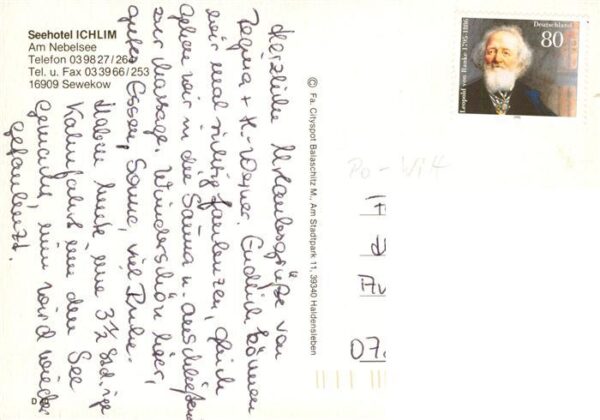 Seehotel ICHLIM
Am Nebelsee
Telefon 039827/264
Tel. u. Fax 033966/253
16909 Sewekow
Herzliche Urlaubsgrüße von
Regina + H.-Werner. Endlich können
wir mal richtig faulenzen, gleich
gehen wir in die Sauna u. anschließend
zur Massage. Wunderschön hier,
gutes Essen, Sonne, viel Ruhe.
Haben heute eine 3½ stdige
Kahnfahrt um den See
gemacht, nun wird wieder
gefaulenzt.
© Fa. Cityspot Balaschitz M., Am Stadtpark 11, 39340 Haldensleben
Deutschland
80
Leopold von Ranke 1795-1886
Po-Wit
07.
D